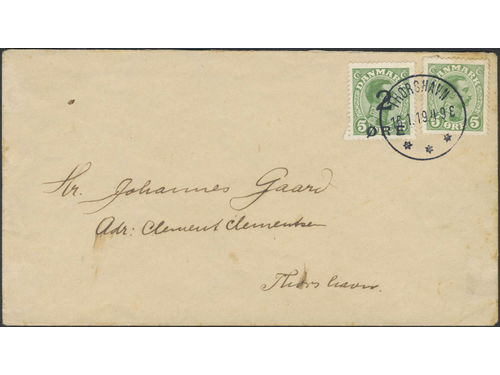 DANMARK
5 ØRE 5
2
ØRE
DANMARK
5 ØRE 5
THORSHAVN
Hr. Johannes Gaard
Adr: Clement Clementsen
Thorshavn.